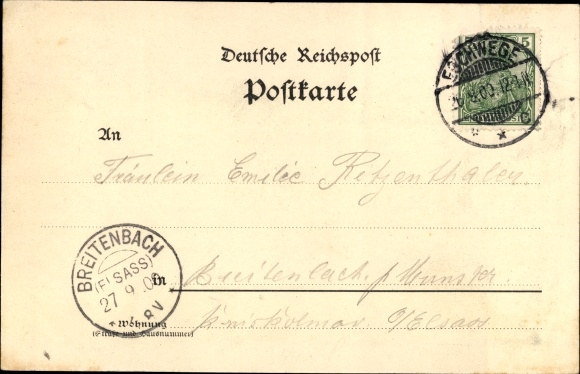 Deutsche Reichspost
Postkarte
5
ESCHWEGE
An
Fräulein Emilie Retzenthaler
BREITENBACH
(ELSASS)
27 9 00
8 V
in Breitenbach b/Munster
Wohnung
(Straße und Hausnummer)
Kreis Kolmar O/Elsass